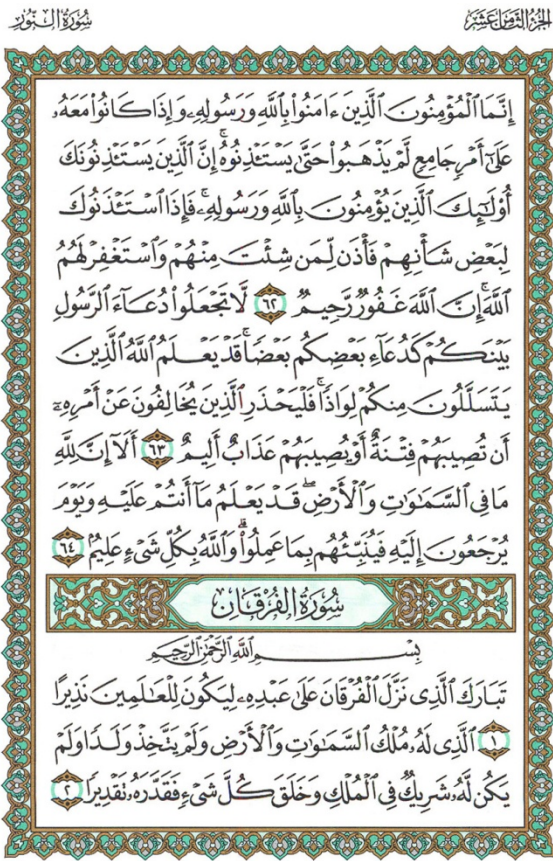 الجزء الثامن عشر
سورة النور
إِنَّمَا ٱلْمُؤْمِنُونَ ٱلَّذِينَ ءَامَنُوا۟ بِٱللَّهِ وَرَسُولِهِۦ وَإِذَا كَانُوا۟ مَعَهُۥ
عَلَىٰٓ أَمْرٍ جَامِعٍ لَّمْ يَذْهَبُوا۟ حَتَّىٰ يَسْتَـْٔذِنُوهُ ۚ إِنَّ ٱلَّذِينَ يَسْتَـْٔذِنُونَكَ
أُو۟لَـٰٓئِكَ ٱلَّذِينَ يُؤْمِنُونَ بِٱللَّهِ وَرَسُولِهِۦ ۚ فَإِذَا ٱسْتَـْٔذَنُوكَ
لِبَعْضِ شَأْنِهِمْ فَأْذَن لِّمَن شِئْتَ مِنْهُمْ وَٱسْتَغْفِرْ لَهُمُ
ٱللَّهَ ۚ إِنَّ ٱللَّهَ غَفُورٌ رَّحِيمٌ ٦٢ لَّا تَجْعَلُوا۟ دُعَآءَ ٱلرَّسُولِ
بَيْنَكُمْ كَدُعَآءِ بَعْضِكُم بَعْضًا ۚ قَدْ يَعْلَمُ ٱللَّهُ ٱلَّذِينَ
يَتَسَلَّلُونَ مِنكُمْ لِوَاذًا ۚ فَلْيَحْذَرِ ٱلَّذِينَ يُخَالِفُونَ عَنْ أَمْرِهِۦٓ
أَن تُصِيبَهُمْ فِتْنَةٌ أَوْ يُصِيبَهُمْ عَذَابٌ أَلِيمٌ ٦٣ أَلَآ إِنَّ لِلَّهِ
مَا فِى ٱلسَّمَـٰوَٰتِ وَٱلْأَرْضِ ۖ قَدْ يَعْلَمُ مَآ أَنتُمْ عَلَيْهِ وَيَوْمَ
يُرْجَعُونَ إِلَيْهِ فَيُنَبِّئُهُم بِمَا عَمِلُوا۟ ۗ وَٱللَّهُ بِكُلِّ شَىْءٍ عَلِيمٌۢ ٦٤
سورة الفرقان
بِسْمِ ٱللَّهِ ٱلرَّحْمَـٰنِ ٱلرَّحِيمِ
تَبَارَكَ ٱلَّذِى نَزَّلَ ٱلْفُرْقَانَ عَلَىٰ عَبْدِهِۦ لِيَكُونَ لِلْعَـٰلَمِينَ نَذِيرًا
١ ٱلَّذِى لَهُۥ مُلْكُ ٱلسَّمَـٰوَٰتِ وَٱلْأَرْضِ وَلَمْ يَتَّخِذْ وَلَدًا وَلَمْ
يَكُن لَّهُۥ شَرِيكٌ فِى ٱلْمُلْكِ وَخَلَقَ كُلَّ شَىْءٍ فَقَدَّرَهُۥ تَقْدِيرًا ٢